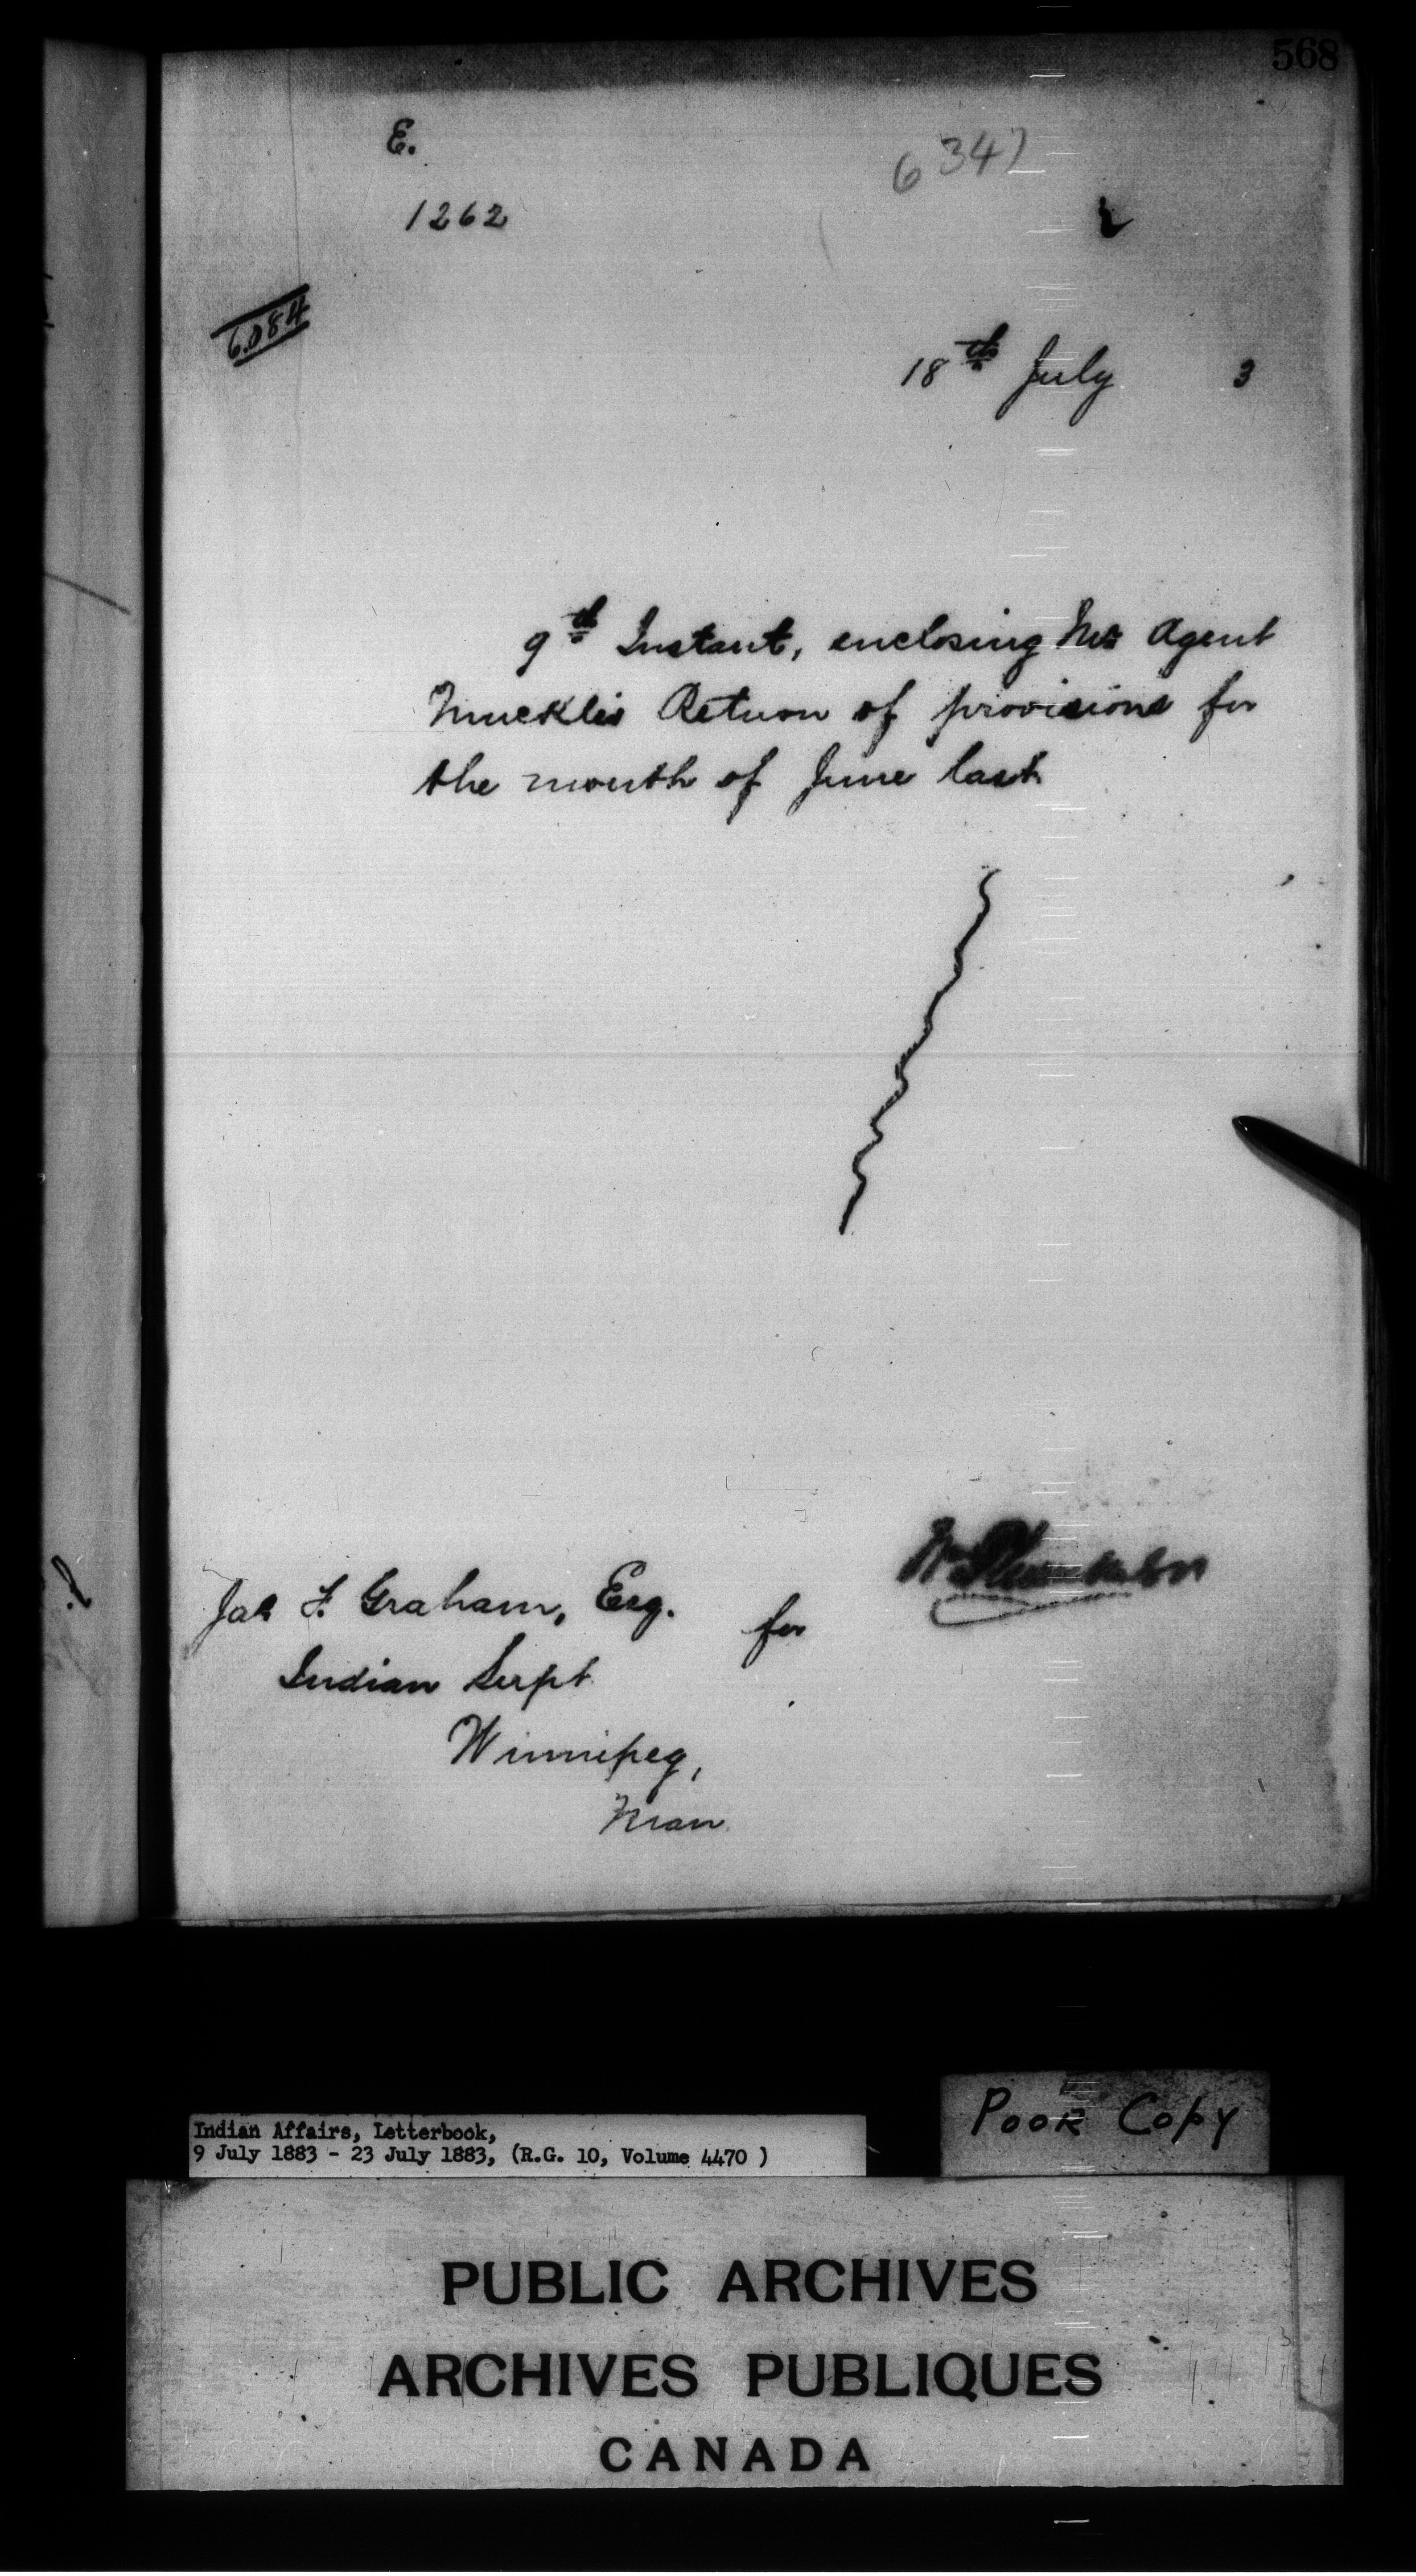 568
E.
6347
1262
6.084
18th July 3
9th Instant, enclosing Mr Agent
Muckles Return of provisions for
the month of June last
Jas. F. Graham, Esq. for
Indian Supt
Winnipeg,
Man
Poor Copy
Indian Affairs, Letterbook,
9 July 1883 - 23 July 1883, (R.G. 10, Volume 4470 )
PUBLIC ARCHIVES
ARCHIVES PUBLIQUES
CANADA